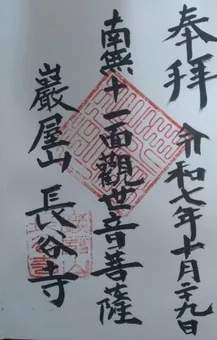 奉拝
令和七年十月二十九日
南無十一面觀世音菩薩
巌屋山 長谷寺